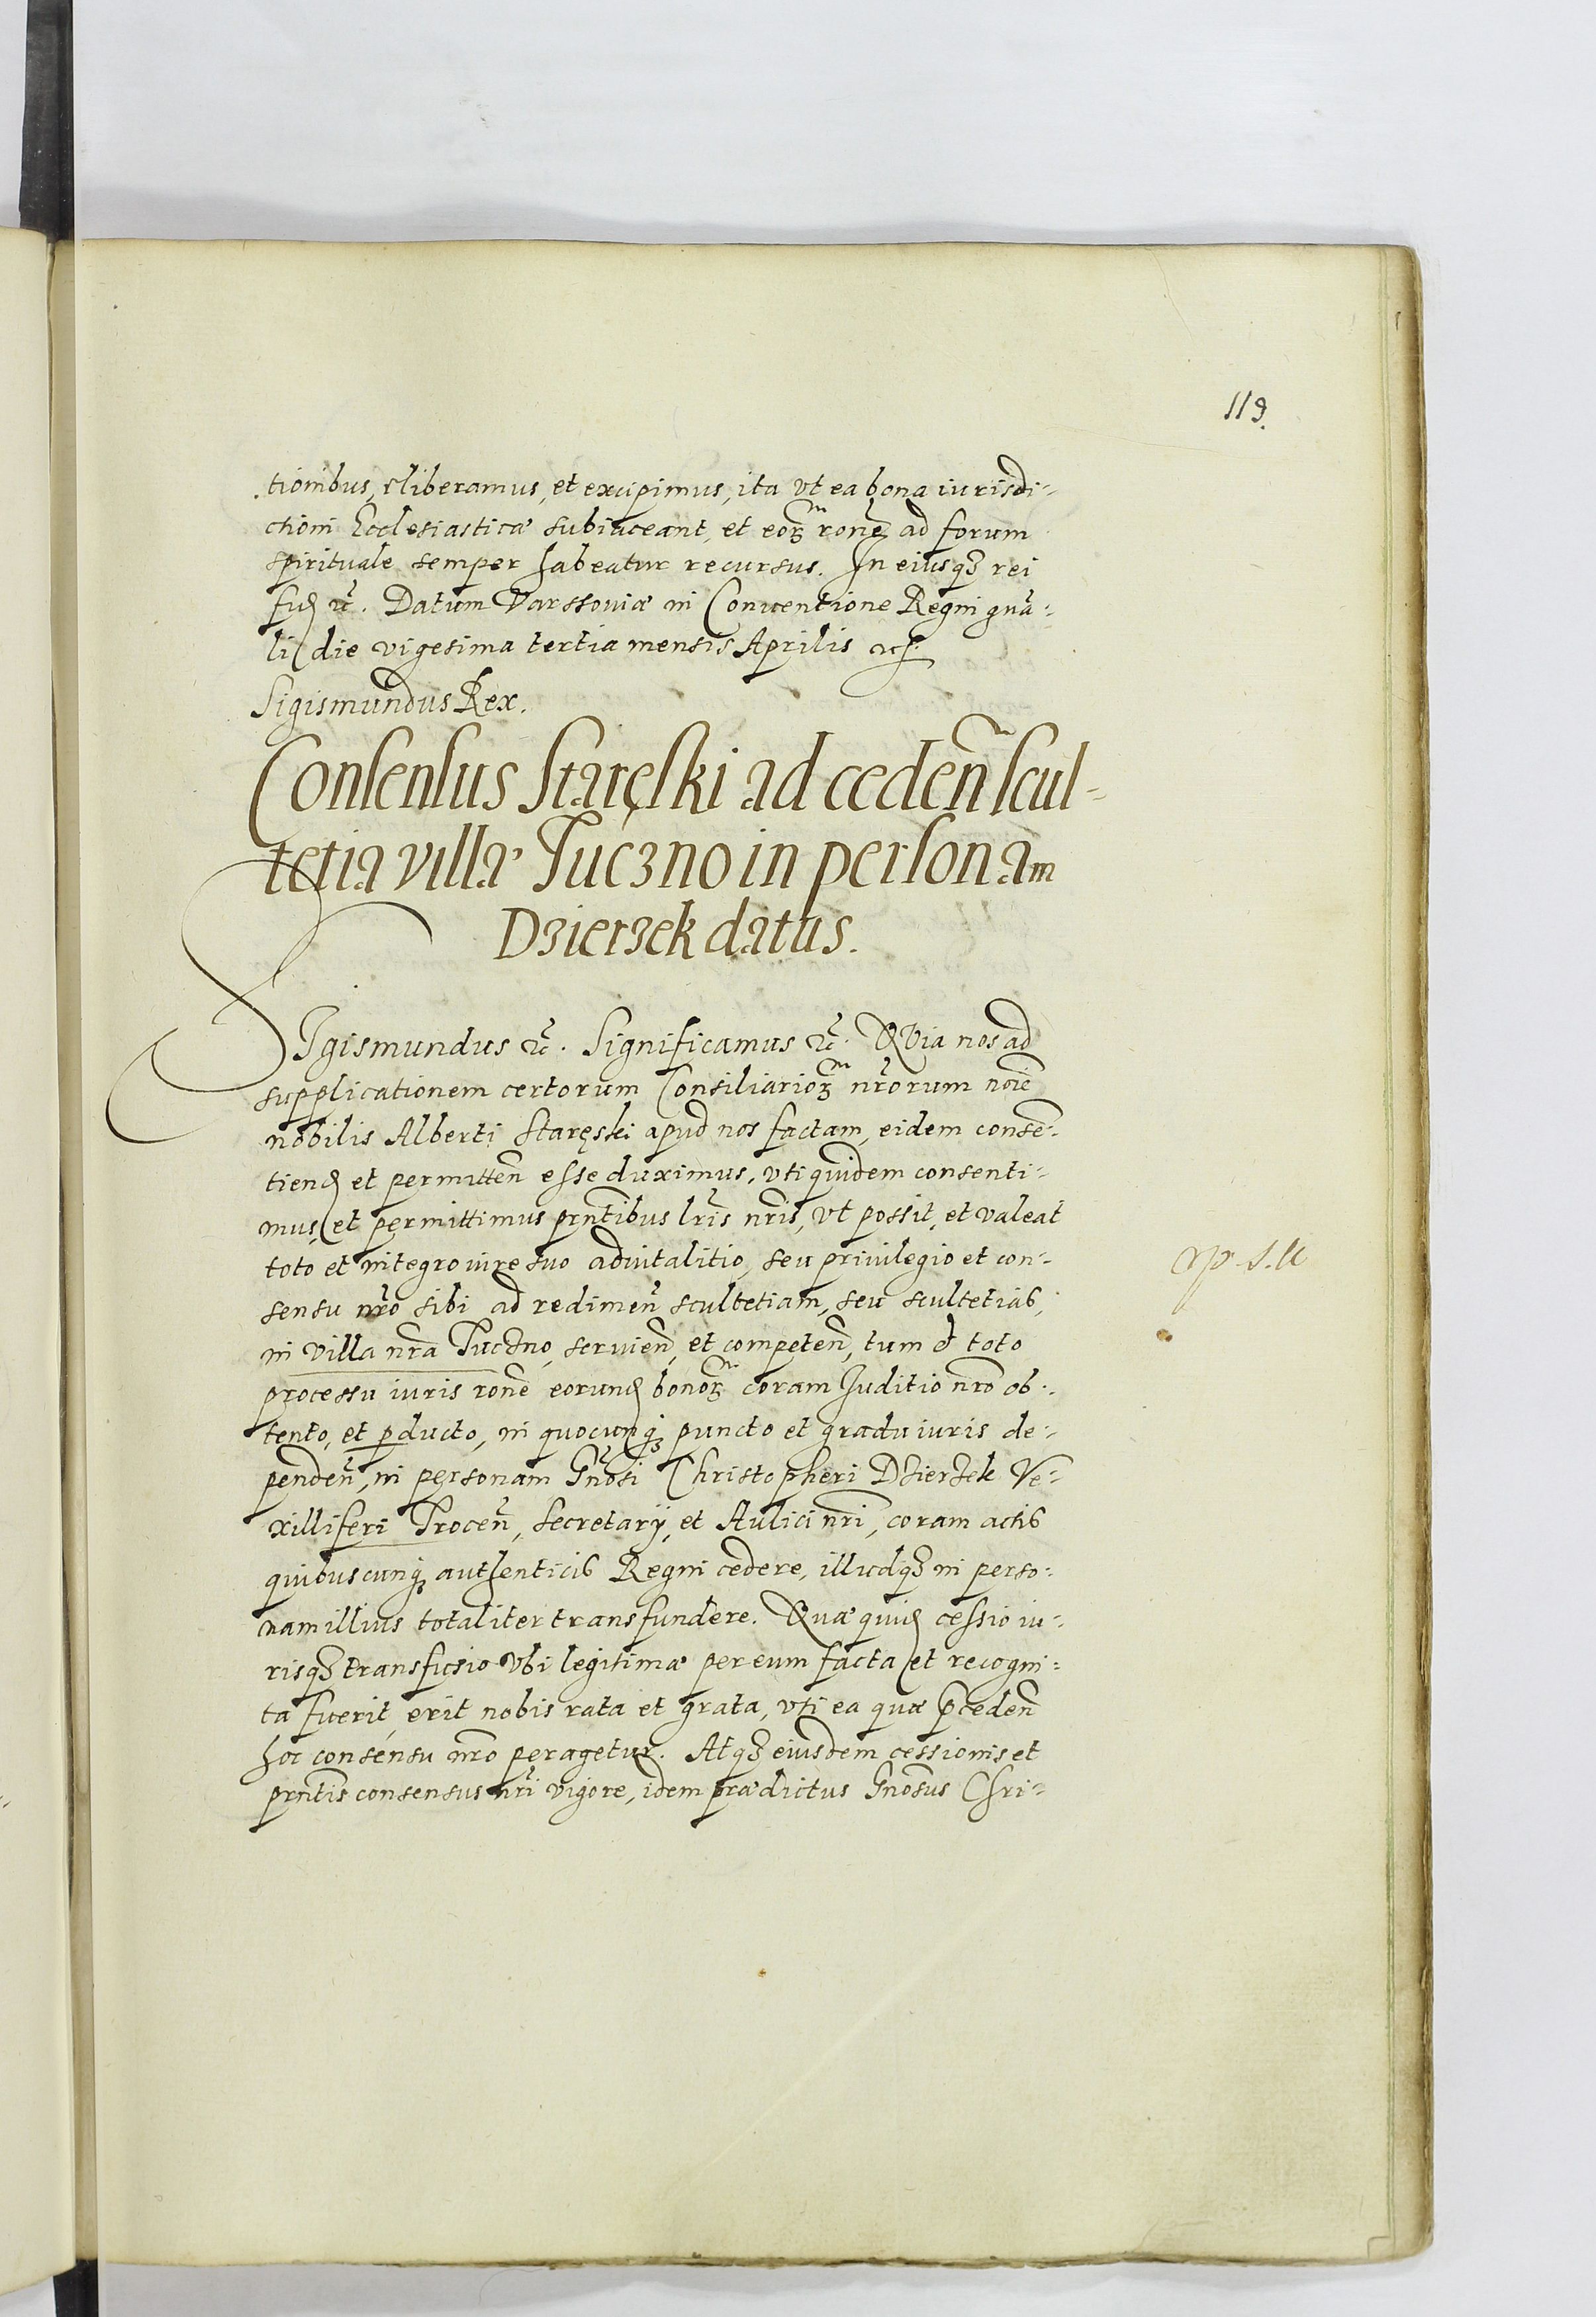 119.
tionibus, eliberamus, et excipimus, ita vt ea bona iurisdi-
ctioni Ecclesiasticæ subiaceant, et eoꝝ rone ad forum
spirituale semper habeatur recursus. In eiusqꝫ rei
fid etc. Datum Varssouiæ in Conuentione Regni gna-
li die vigesima tertia mensis Aprilis
Sigismundus Rex.
Consensus Staręski ad ceden̄ scul-
tetia villæ Tuczno in personam
Dzierzek datus.
SIgismundus etc. Significamus etc. QVia nos ad
supplicationem certorum Consiliarioꝝ nrorum noie
nobilis Alberti Staręski apud nos factam, eidem consen-
tiend et permitten̄ esse duximus, vti quidem consenti-
mus, et permittimus prntibus lris nris, vt possit, et valeat
toto et integro iure suo aduitalitio, seu priuilegio et con-
sensu nro sibi ad redimen̄ scultetiam, seu scultetias,
in villa nra Tuczno, seruien̄, et competen̄, tum et toto
processu iuris rone eorund bonoꝝ coram Juditio nro ob-
tento, et ꝑducto, in quocunqꝫ puncto et gradu iuris de-
penden̄, in personam Gnosi Christopheri Dzierzek Ve-
xilliferi Trocen̄, Secretarij, et Aulici nri, coram actis
quibuscunqꝫ authenticis Regni cedere, illudqꝫ in perso-
nam illius totaliter transfundere. Quæ quid cessio iu-
risqꝫ transfusio vbi legitimæ per eum facta et recogni-
ta fuerit, erit nobis rata et grata, vti ea quæ p̄ceden̄
hoc consensu nro peragetur. Atqꝫ eiusdem cessionis et
prntis consensus nri vigore, idem prædictus Gnosus Chri-